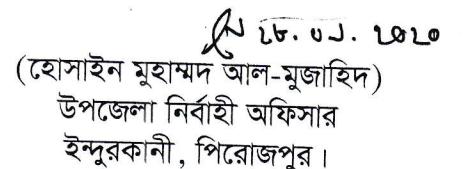 ২৮.০১.২০২০
(হোসাইন মুহাম্মদ আল-মুজাহিদ)
উপজেলা নির্বাহী অফিসার
ইন্দুরকানী, পিরোজপুর।